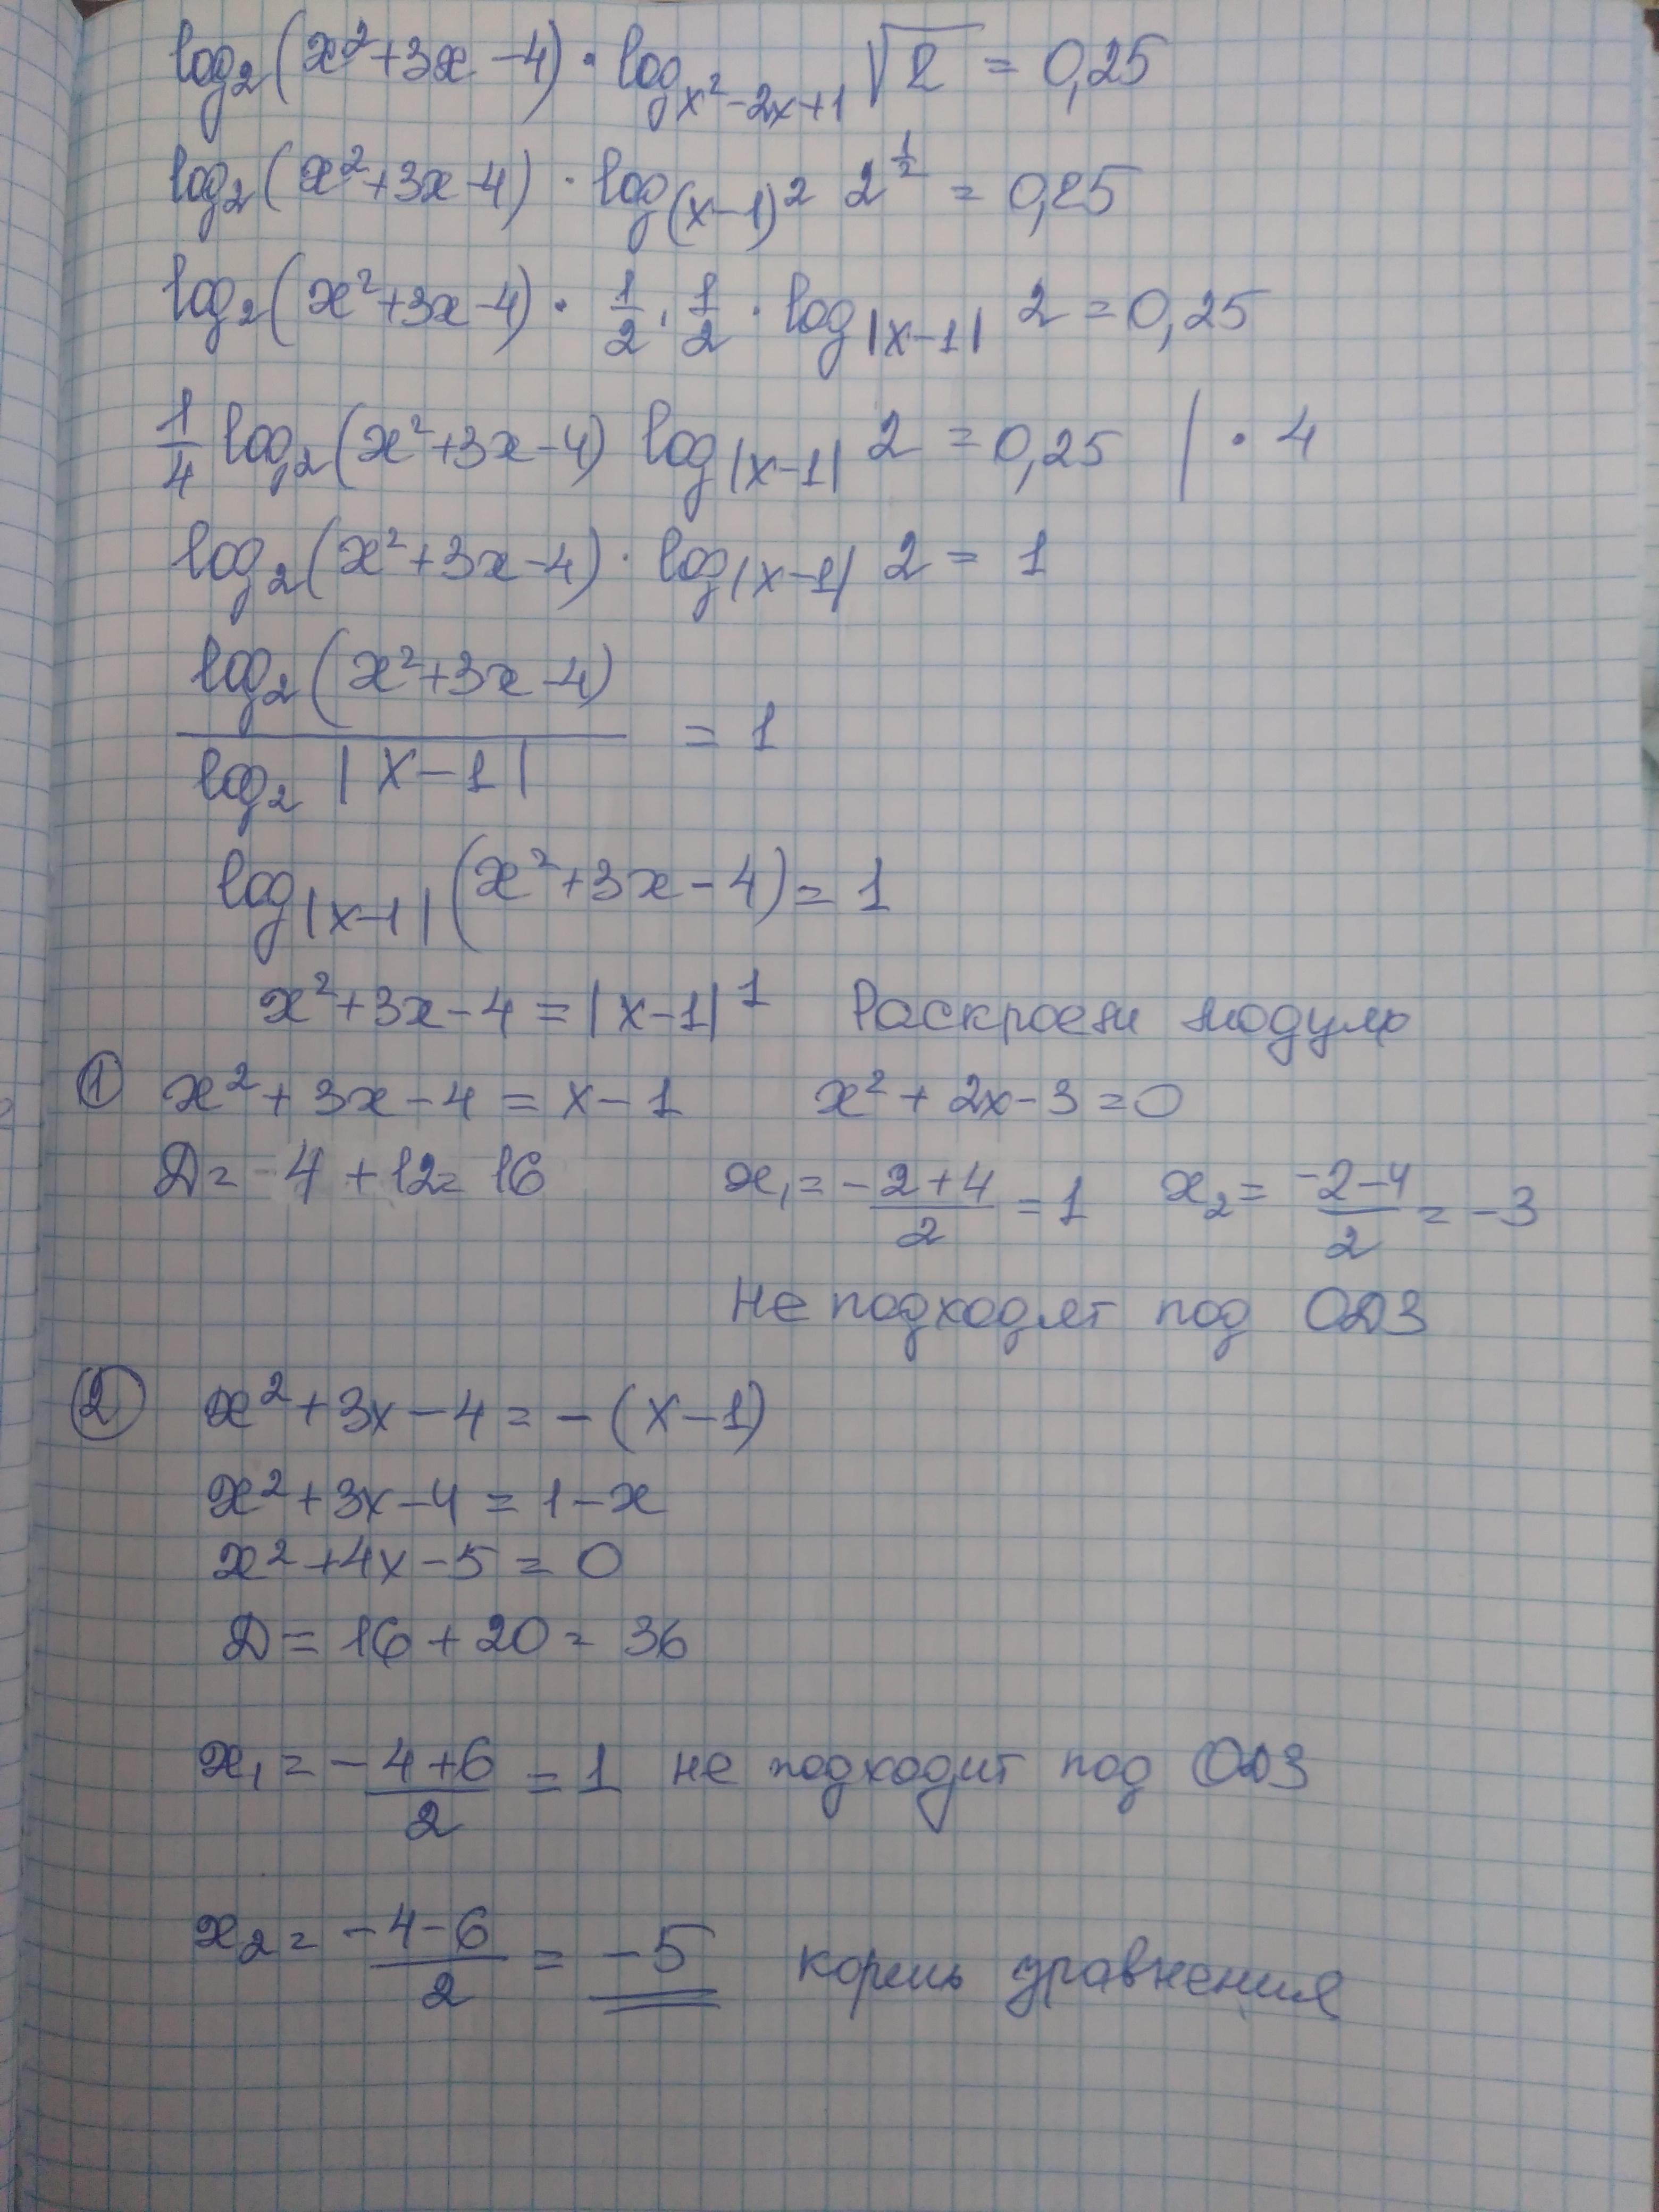 log₂(x²+3x-4)·log_{x²-2x+1} √2 = 0,25
log₂(x²+3x-4)·log_{(x-1)²} 2^{1/2} = 0,25
log₂(x²+3x-4)·1/2·1/2·log_{|x-1|} 2 = 0,25
1/4 log₂(x²+3x-4) log_{|x-1|} 2 = 0,25 |·4
log₂(x²+3x-4)·log_{|x-1|} 2 = 1
log₂(x²+3x-4) / log₂|x-1| = 1
log_{|x-1|}(x²+3x-4) = 1
x²+3x-4 = |x-1|¹ Раскроем модуль
① x²+3x-4 = x-1 x²+2x-3=0
Д = 4+12 = 16 x₁ = (-2+4)/2 = 1 x₂ = (-2-4)/2 = -3
Не подходят под ОДЗ
② x²+3x-4 = -(x-1)
x²+3x-4 = 1-x
x²+4x-5 = 0
Д = 16+20 = 36
x₁ = (-4+6)/2 = 1 не подходит под ОДЗ
x₂ = (-4-6)/2 = -5 корень уравнения